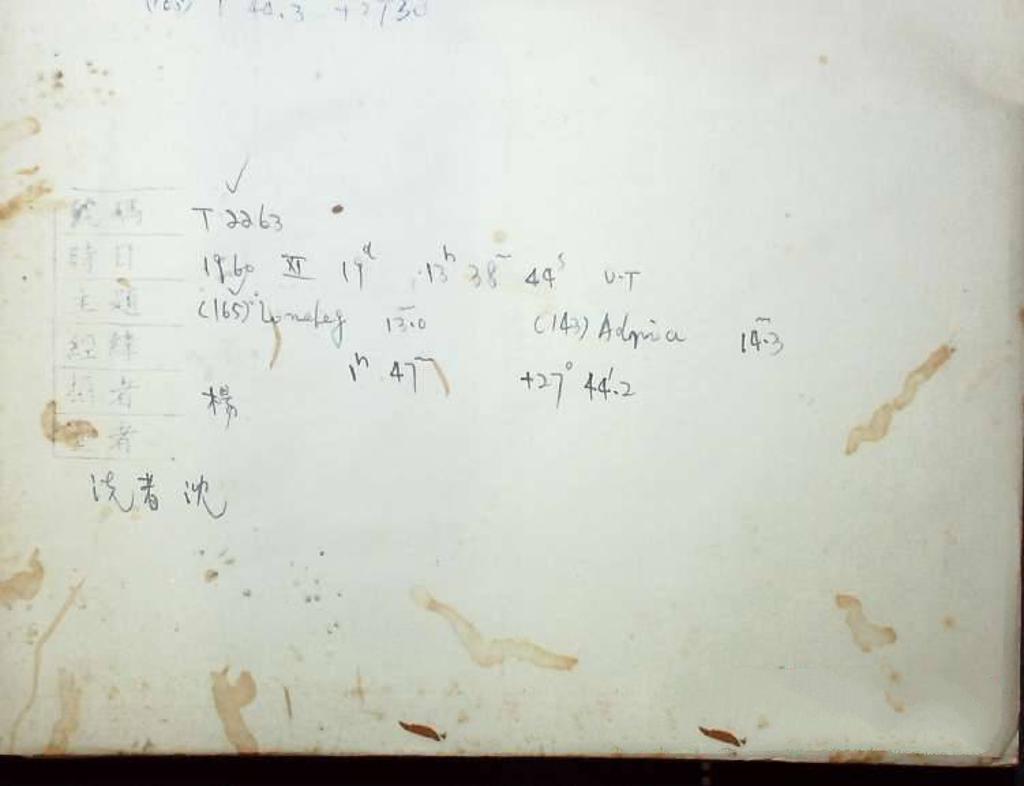 (165) 1 44.3 +2730
號碼 T 2263
時日 1960 XI 19d 13h 38m 44s U.T
主題 (165) Loreley 13.0m (143) Adria 14.3m
經緯 1h 47m +27° 44'.2
攝者 楊
者
洗者 沈